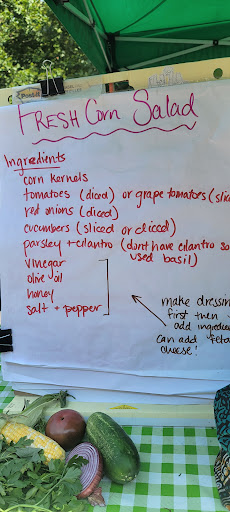 FRESH Corn Salad
Ingredients
corn kernels
tomatoes (diced) or grape tomatoes (slic
red onions (diced)
cucumbers (sliced or diced)
parsley + cilantro (dont have cilantro so
used basil)
vinegar
olive oil
honey
salt + pepper
make dressin
first then
add ingredie
can add feta
cheese!